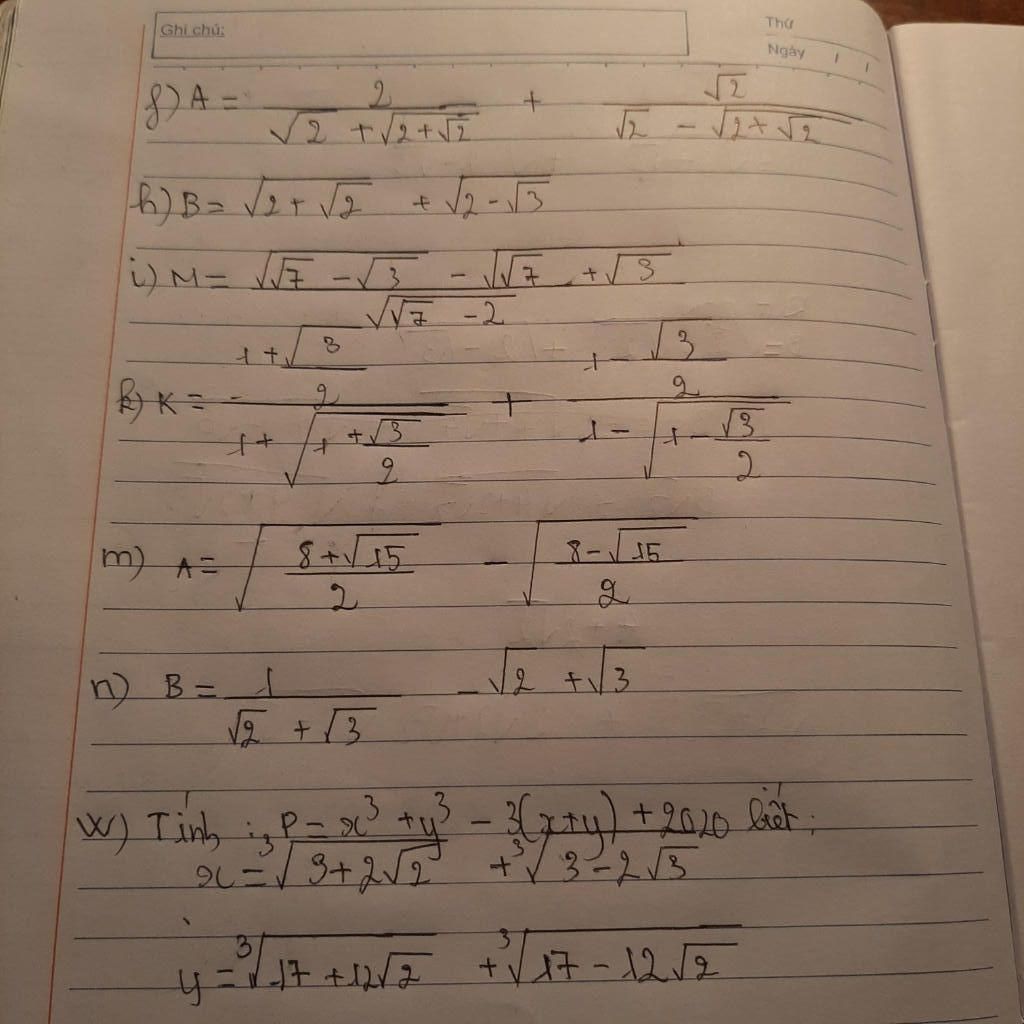 Ghi chú:
Thứ
Ngày / /
f) A = 2/(√2 + √(2+√2)) + √2/(√2 - √(2+√2))
h) B = √(2+√2) + √(2-√3)
i) M = (√(√7 - √3) - √(√7 + √3))/√(√7 - 2)
k) K = (1 + √3/2)/(1 + √(1 + √3/2)) + (1 - √3/2)/(1 - √(1 - √3/2))
m) A = √((8+√15)/2) - √((8-√15)/2)
n) B = 1/(√2 + √3) - √2 + √3
w) Tính : P = x³ + y³ - 3(x+y) + 2020 biết :
x = ³√(3+2√2) + ³√(3-2√3)
y = ³√(17+12√2) + ³√(17-12√2)